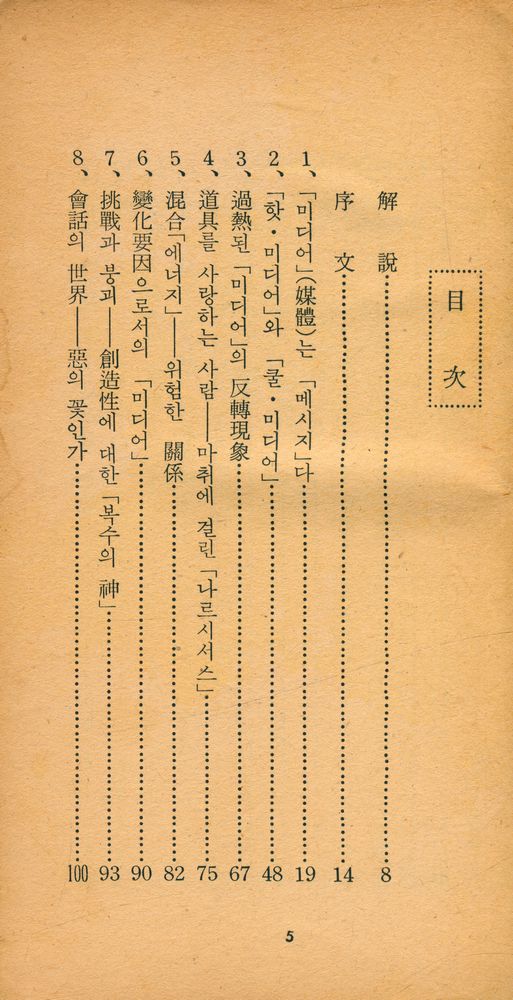 目次
解説……8
序文……14
1、「미디어」(媒體)는 「메시지」다……19
2、「핫・미디어」와 「쿨・미디어」……48
3、過熱된 「미디어」의 反轉現象……67
4、道具를 사랑하는 사람――마취에 걸린 「나르시서스」……75
5、混合「에너지」――위험한 關係……82
6、變化要因으로서의 「미디어」……90
7、挑戰과 붕괴――創造性에 대한 「복수의 神」……93
8、會話의 世界――惡의 꽃인가……100
5